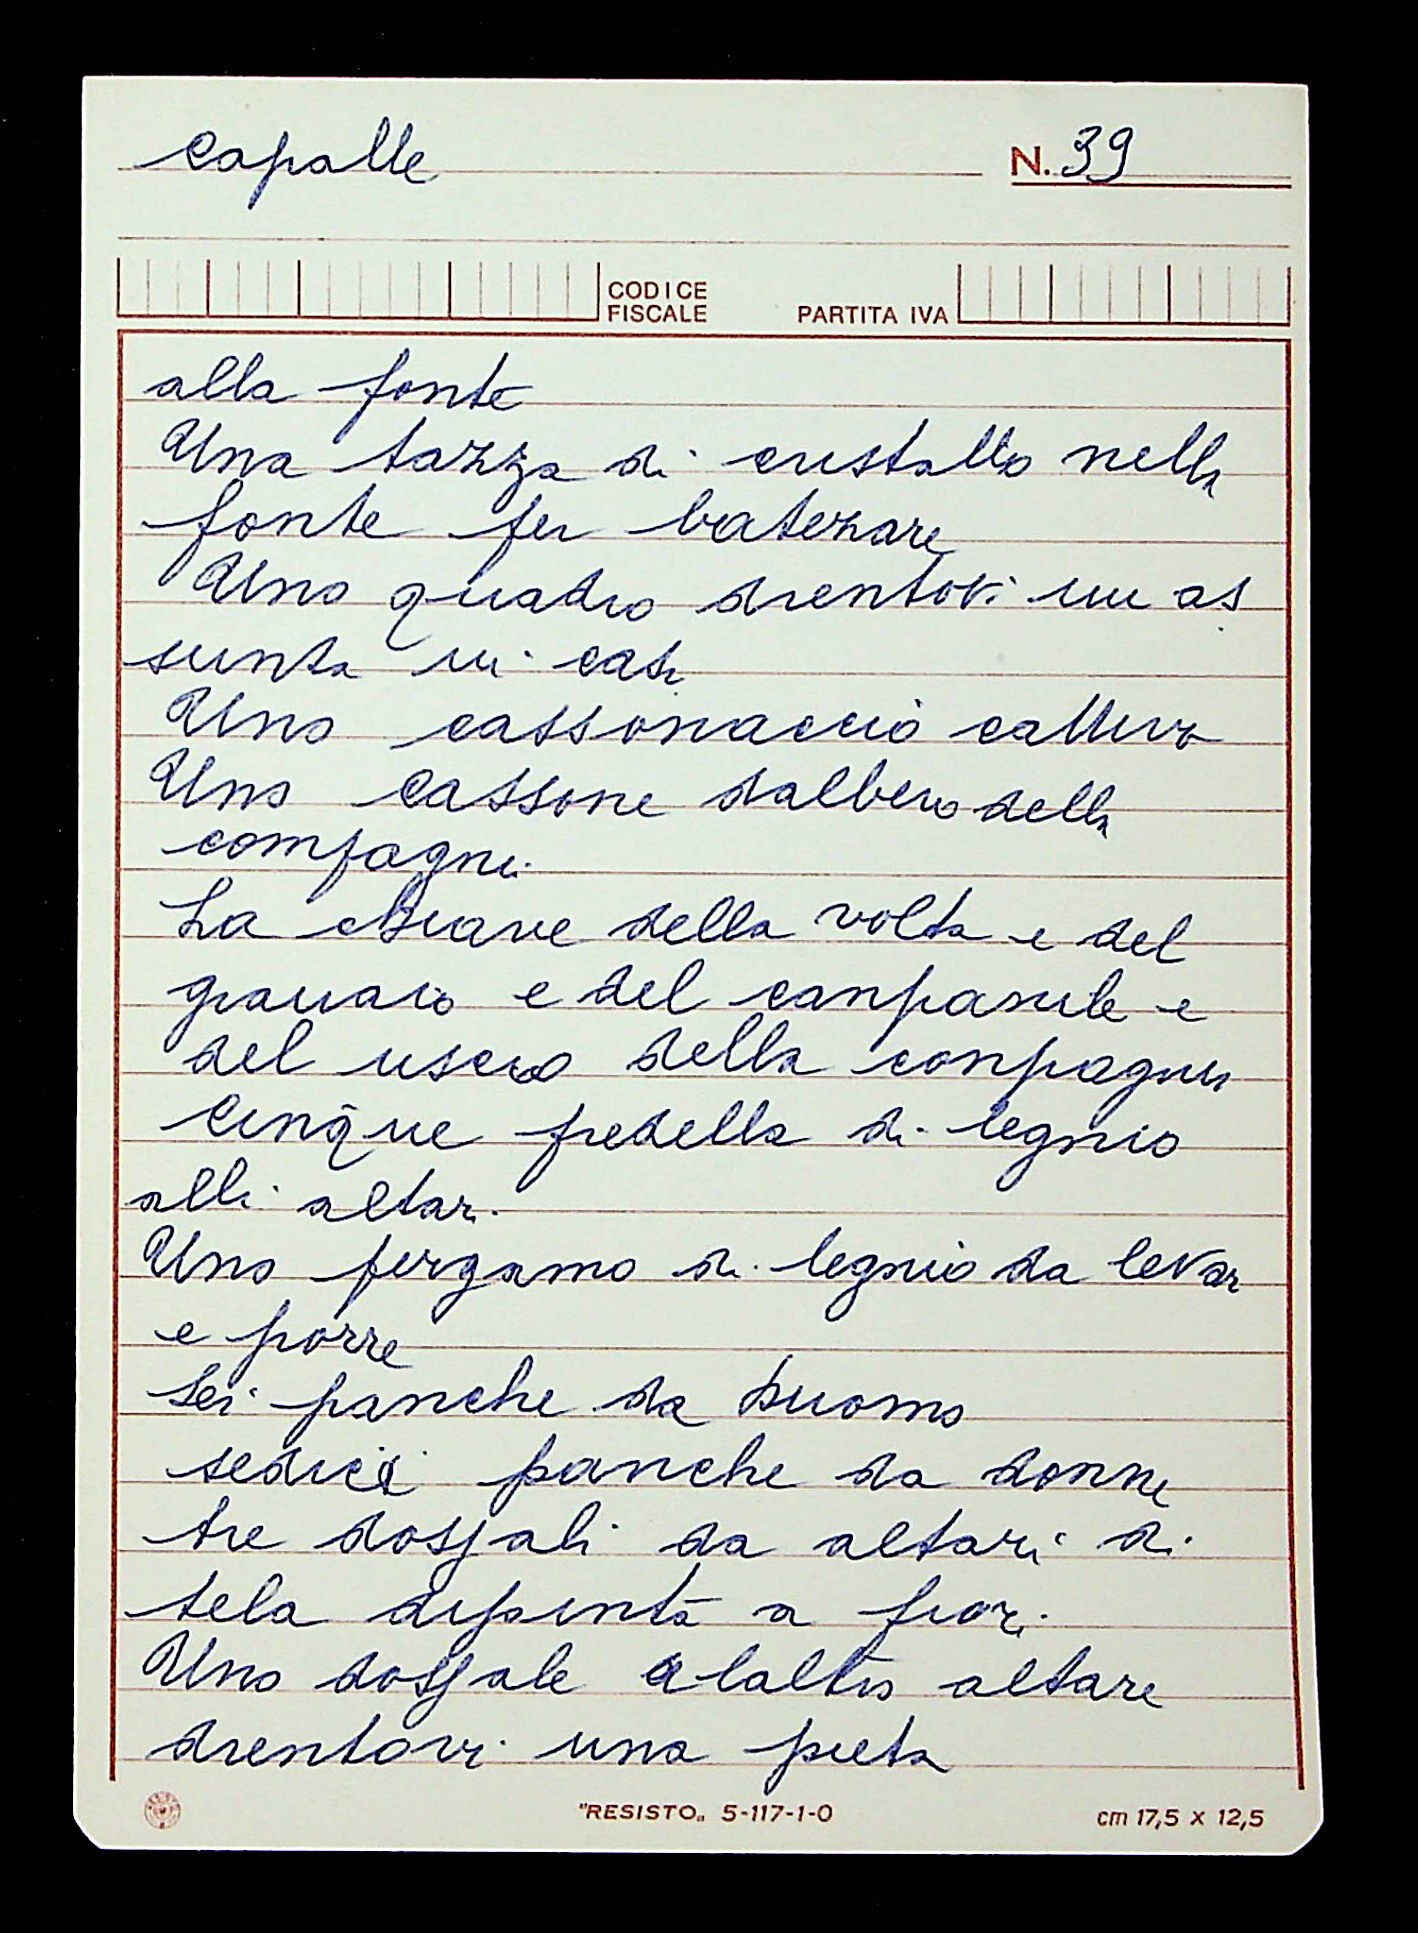 Capalle N. 39
CODICE
FISCALE PARTITA IVA
alla fonte
Una tazza di cristallo nella
fonte per batezare
Uno quadro drentovi un as
sunta in casa
Uno cassonaccio cattivo
Uno cassone dalbero della
compagni
La chiave della volta e del
granaio e del canpanile e
del uscio della conpagnia
Cinque predella di legnio
alli altari
Uno pergamo di legnio da levar
e porre
Sei panche da huomo
sedici panche da donne
tre dossali da altari di
tela dipinta a fiori
Uno dossale a laltro altare
drentovi una pieta
"RESISTO" 5-117-1-0 cm 17,5 x 12,5